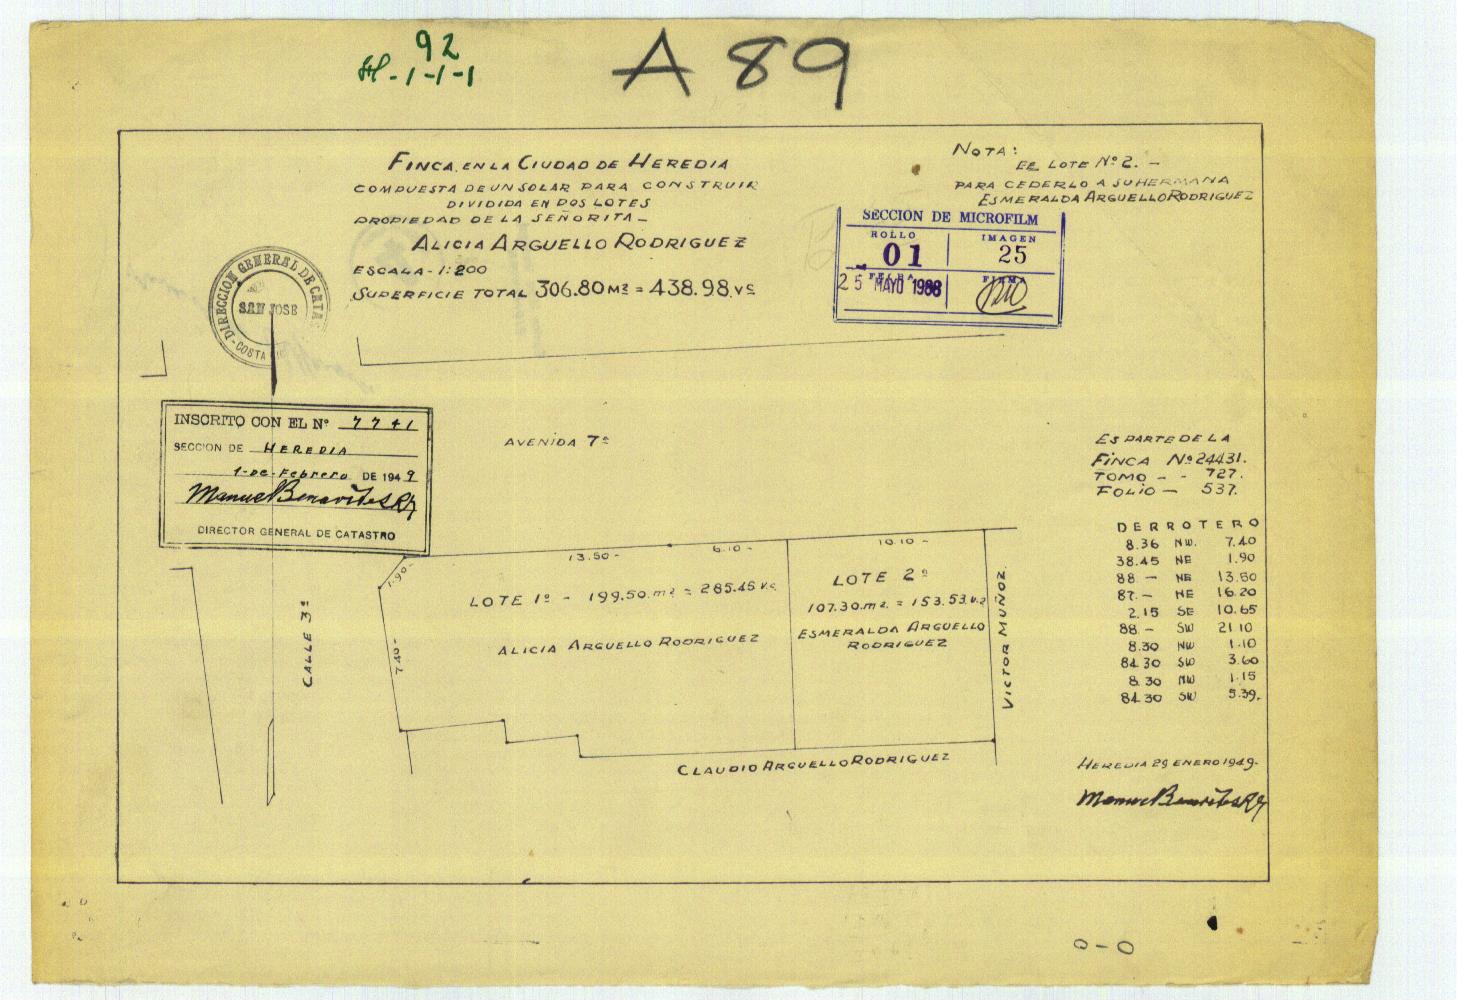 92
H-1-1-1
A 89
FINCA EN LA CIUDAD DE HEREDIA
COMPUESTA DE UN SOLAR PARA CONSTRUIR
DIVIDIDA EN DOS LOTES
PROPIEDAD DE LA SEÑORITA –
ALICIA ARGUELLO RODRIGUEZ
ESCALA - 1:200
SUPERFICIE TOTAL 306.80 M² = 438.98 vs
NOTA:
EL LOTE Nº 2. –
PARA CEDERLO A SU HERMANA
ESMERALDA ARGUELLO RODRIGUEZ
SECCION DE MICROFILM
ROLLO 01
IMAGEN 25
FECHA 25 MAYO 1988
FIRMA
DIRECCION GENERAL DE CATAS
SAN JOSE
COSTA
INSCRITO CON EL Nº 7741
SECCION DE HEREDIA
1-DE-Febrero DE 1949
Manuel Benavides R
DIRECTOR GENERAL DE CATASTRO
AVENIDA 7ª
ES PARTE DE LA
FINCA Nº 24431.
TOMO - - 727.
FOLIO – 537.
DERROTERO
8.36 NW. 7.40
38.45 NE 1.90
88 – NE 13.50
87.– NE 16.20
2.15 SE 10.65
88 – SW 21.10
8.30 NW 1.10
84.30 SW 3.60
8.30 NW 1.15
84.30 SW 5.39.
1.90-
13.50 -
6.10 -
10.10 -
LOTE 1º - 199.50 m² = 285.45 v.c.
ALICIA ARGUELLO RODRIGUEZ
LOTE 2º
107.30 m² = 153.53 v.2
ESMERALDA ARGUELLO
RODRIGUEZ
7.40-
CALLE 3ª
VICTOR MUÑOZ.
CLAUDIO ARGUELLO RODRIGUEZ
HEREDIA 29 ENERO 1949.
Manuel Benavides R
0-0